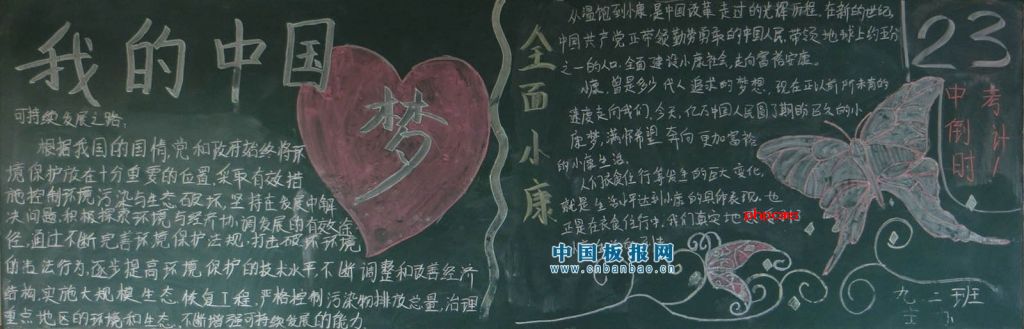 我的中国
梦
可持续发展之路:
根据我国的国情,党和政府始终将环
境保护放在十分重要的位置,采取有效措
施控制环境污染与生态破坏,坚持在发展中解
决问题,积极探索环境与经济协调发展的有效途
径,通过不断完善环境保护法规,打击破坏环境
的违法行为,逐步提高环境保护的技术水平,不断调整和改善经济
结构,实施大规模生态恢复工程,严格控制污染物排放总量,治理
重点地区的环境和生态,不断增强可持续发展的能力
全面小康
从温饱到小康,是中国改革走过的光辉历程,在新的世纪,
中国共产党正带领勤劳勇敢的中国人民,带领地球上约五分
之一的人口,全面建设小康社会,走向富裕安康。
小康,曾是多少代人追求的梦想,现在正以前所未有的
速度走向我们,今天,亿万中国人民圆了期盼已久的小
康梦,满怀希望奔向更加富裕
的小康生活。
人们衣食住行等发生的巨大变化,
就是生活水平达到小康的具体表现,也
正是在衣食住行中,我们真实地
23
中考倒计时!
中国板报网
www.cnbanbao.cn
九 二班